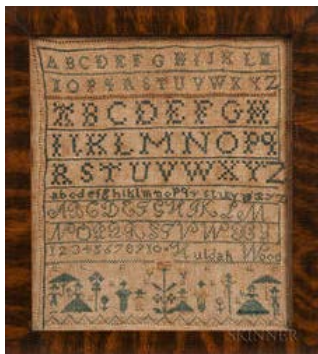 ABCDEFGHIJKLM
NOPQRSTUVWXYZ
ABCDEFGH
IJKLMNOPQ
RSTUVWXYZ
abcdefghiklmnopqrstuvwxyz
12345678910 Huldah Wood
SKINNER